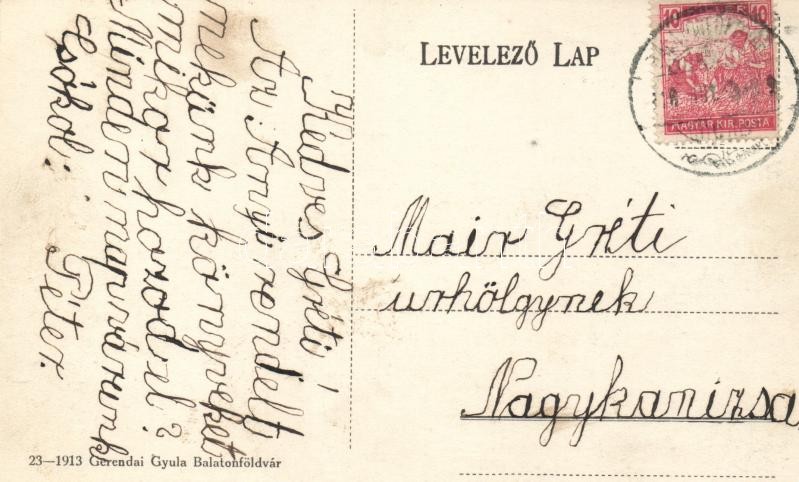 LEVELEZŐ LAP
10 F 10
MAGYAR KIR. POSTA
Kedves Gréti!
Az Anyu rendelt
nekünk könyveket
mikor hozod el?
Minden nap várunk
csókol:
Péter.
Mair Gréti
urhölgynek
Nagykanizsa
23—1913 Gerendai Gyula Balatonföldvár